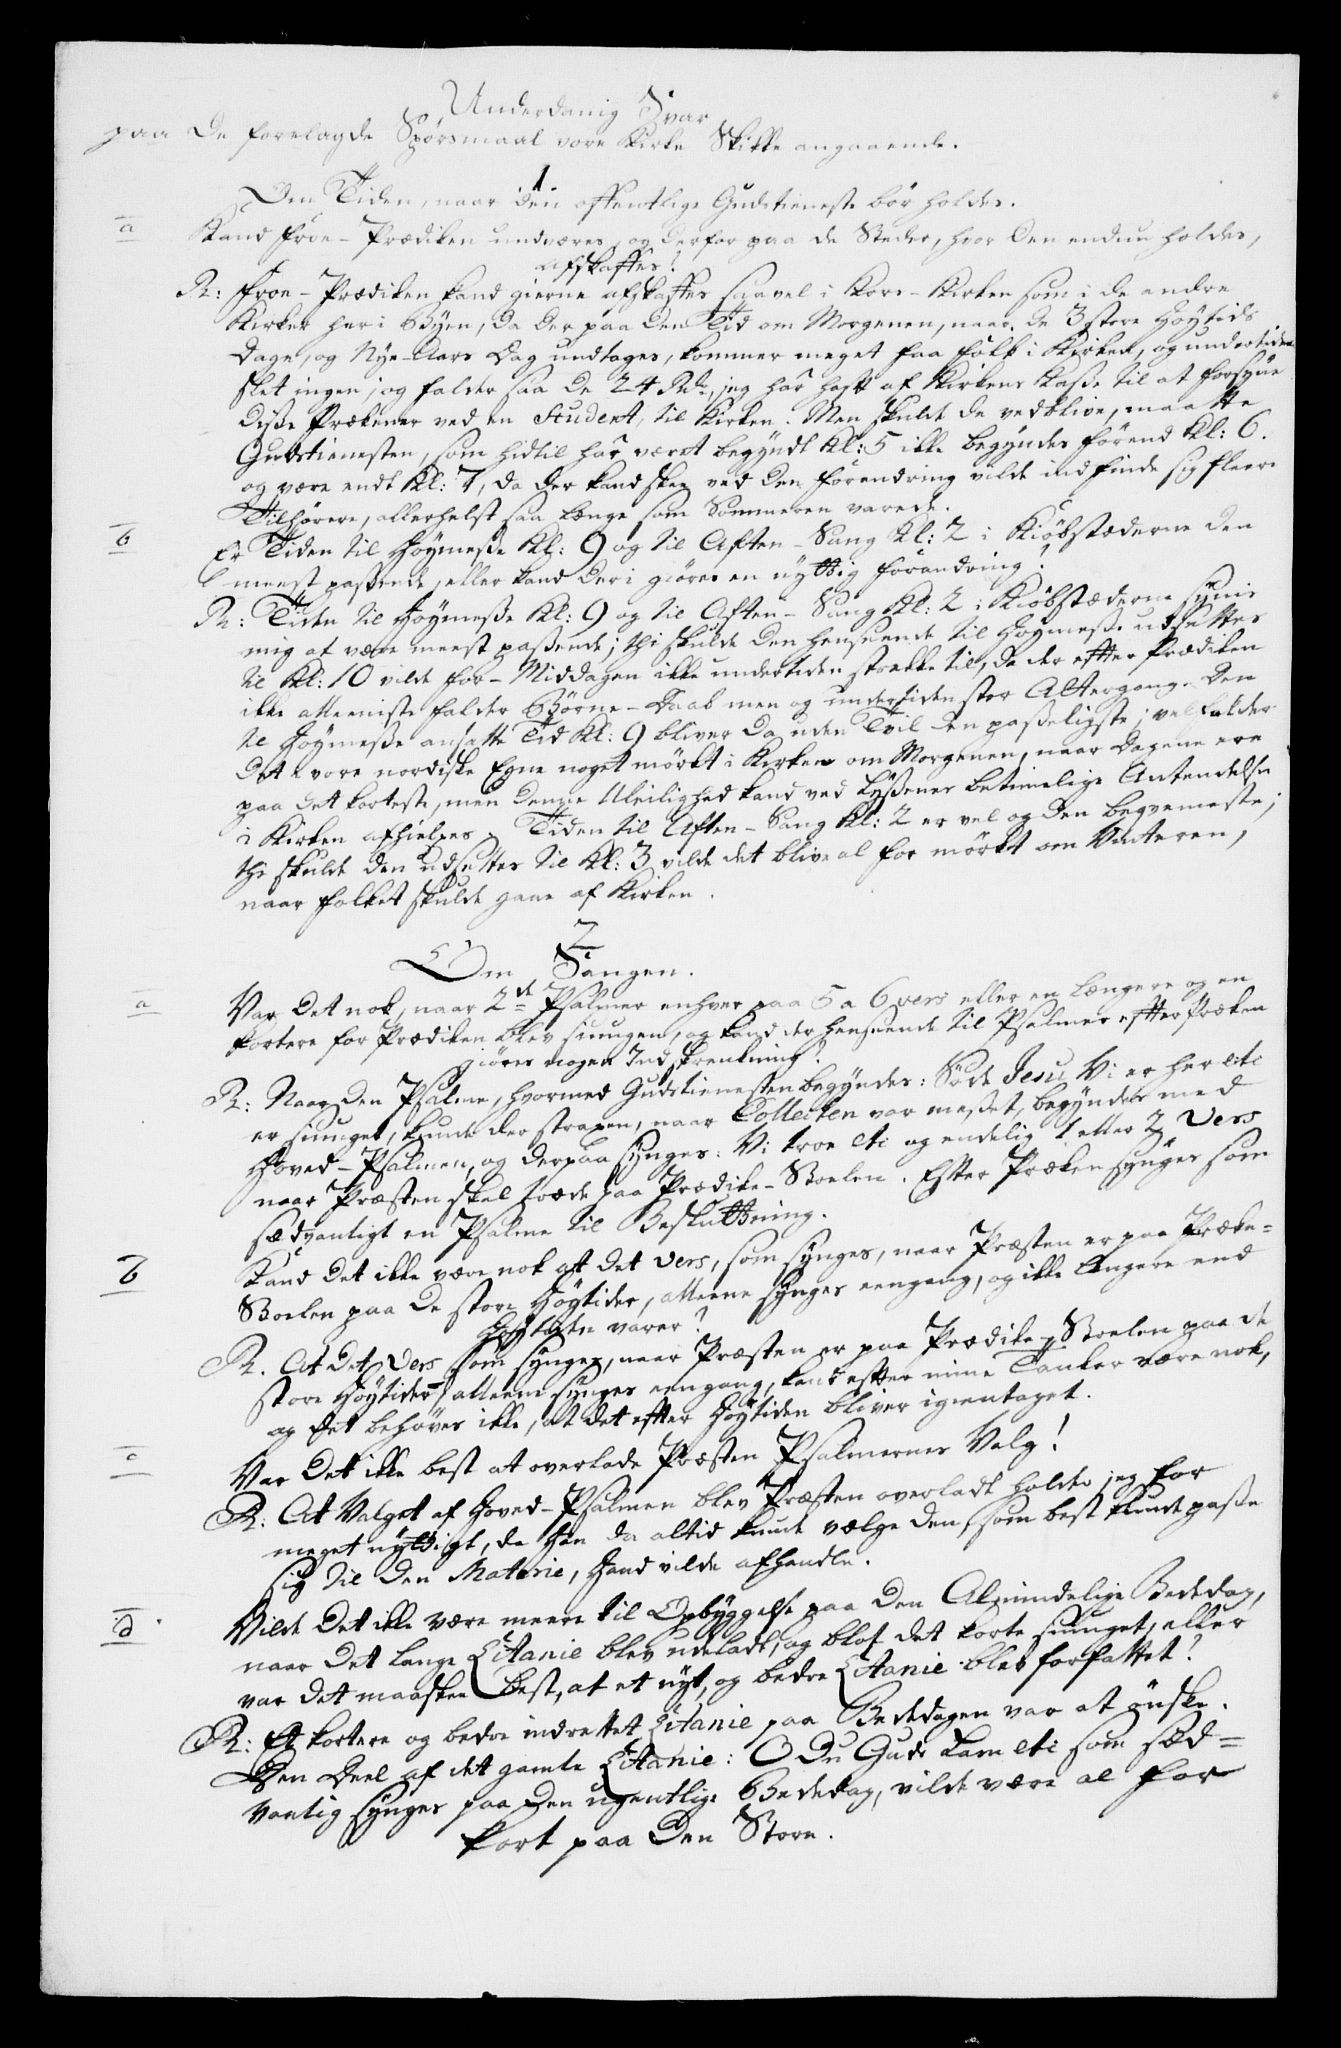 Underdanig Svar
paa de forelagde Spørsmaal vore Kirke Skikke angaaende.
1
Om Tiden, naar den offentlige Gudstieneste bör holdes.
a Kand froe-Prædiken undværes, og derfor paa de Steder, hvor den endnu holdes,
afskaffes?
R: froe-Prædiken kand gierne afskaffes saavel i Kors-Kirken som i de andre
Kirker her i Byen, da der paa den Tid om Morgenen, naar de 3 store Høytids
Dage, og Nye-Aars Dag undtages, kommer meget faa folk i Kirken, og undertiden
slet ingen; og falder saa de 24 Rdr, jeg har haft af Kirkens Kaße til at forsyne
diße Prækener ved en Student, til Kirken. Men skulde de vedblive, maatte
Gudstienesten, som hidtil har været begyndt Kl: 5 ikke begyndes förend Kl: 6.
og være endt Kl: 7, da der kand skee ved den forandring vilde indfinde sig fleere
Tilhörere, allerhelst saa længe som Sommeren varede.
b Er Tiden til Höymeße Kl: 9 og til Aften-Sang Kl: 2 i Kiöbstæderne den
meest paßende, eller kand deri giöres en nyttig forandring?
R: Tiden til Höymeße Kl: 9 og til Aften-Sang Kl: 2 i Kiöbstæderne synes
mig at være meest paßende; thi skulde den henseende til Höymeße udsættes
til Kl: 10 vilde for-Middagen ikke undertiden strække til, da der efter Prædiken
ikke alleeniste falder Börne-Daab men og undertiden stor Altergang. Den
til Höymeße ansatte Tid Kl: 9 bliver da uden Tvil den paßeligste; vel falder
det i vore nordiske Egne noget mörkt i Kirken om Morgenen, naar Dagene ere
paa det korteste, men denne Uleilighed kand ved Lyßenes betimelige Antendelse
i Kirken afhielpes. Tiden til Aften-Sang Kl: 2 er vel og den beqvemeste;
thi skulde den udsættes til Kl: 3 vilde det blive al for mörkt om Vinteren,
naar folket skulde gaae af Kirken.
2
Om Sangen.
a Var det nok, naar 2de Psalmer enhver paa 5 a 6 vers eller en længere og en
kortere for Prædiken blev siungen, og kand der henseende til Psalmer efter Præken
giöres nogen Indskrenkning?
R: Naar den Psalme, hvormed Gudstienesten begyndes: Söde Jesu Vi er her etc
er siunget, kunde der straxen, naar Collecten var meßet, begyndes med
Hoved-Psalmen, og derpaa synges: Vi troe etc og endelig 1 eller 2 Vers
naar Præsten skal træde paa Prædike-Stoelen. Efter Præken synges som
sædvanligt en Psalme til Beslutning.
b Kand det ikke være nok at det vers, som synges, naar Præsten er paa Præke-
Stoelen paa de store Höytider, alleene synges eengang, og ikke længere end
Höytiden varer?
R. At det Vers som synges, naar Præsten er paa Prædike-Stoelen paa de
store Höytider alleene synges eengang, kand efter mine Tanker være nok,
og det behöves ikke, at det efter Höytiden bliver igientaget.
c Var det ikke best at overlade Præsten Psalmernes Valg!
R. At Valget af Hoved-Psalmen blev Præsten overladt holder jeg for
meget nyttigt, da han da altid kunde vælge den, som best kunde paße
sig til den Materie, hand vilde afhandle.
d Vilde det ikke være meere til Opbyggelse paa den Almindelige Bededag,
naar det lange Litanie blev udeladt, og blot det korte siunget, eller
var det maaskee best, at et nyt, og bedre Litanie blev forfattet?
R: Et kortere og bedre indrettet Litanie paa Bededagen var at önske.
Den Deel af det gamle Litanie: O Du Guds Lam etc som sæd-
vanlig synges paa den ugentlige Bededag, vilde være al for
kort paa den Store.